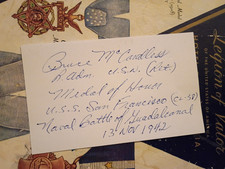 Bruce McCandless
R. Adm. U.S.N. (Ret)
Medal of Honor
U.S.S. San Francisco (CA-38)
Naval Battle of Guadalcanal
13 Nov 1942
Legion of Valor